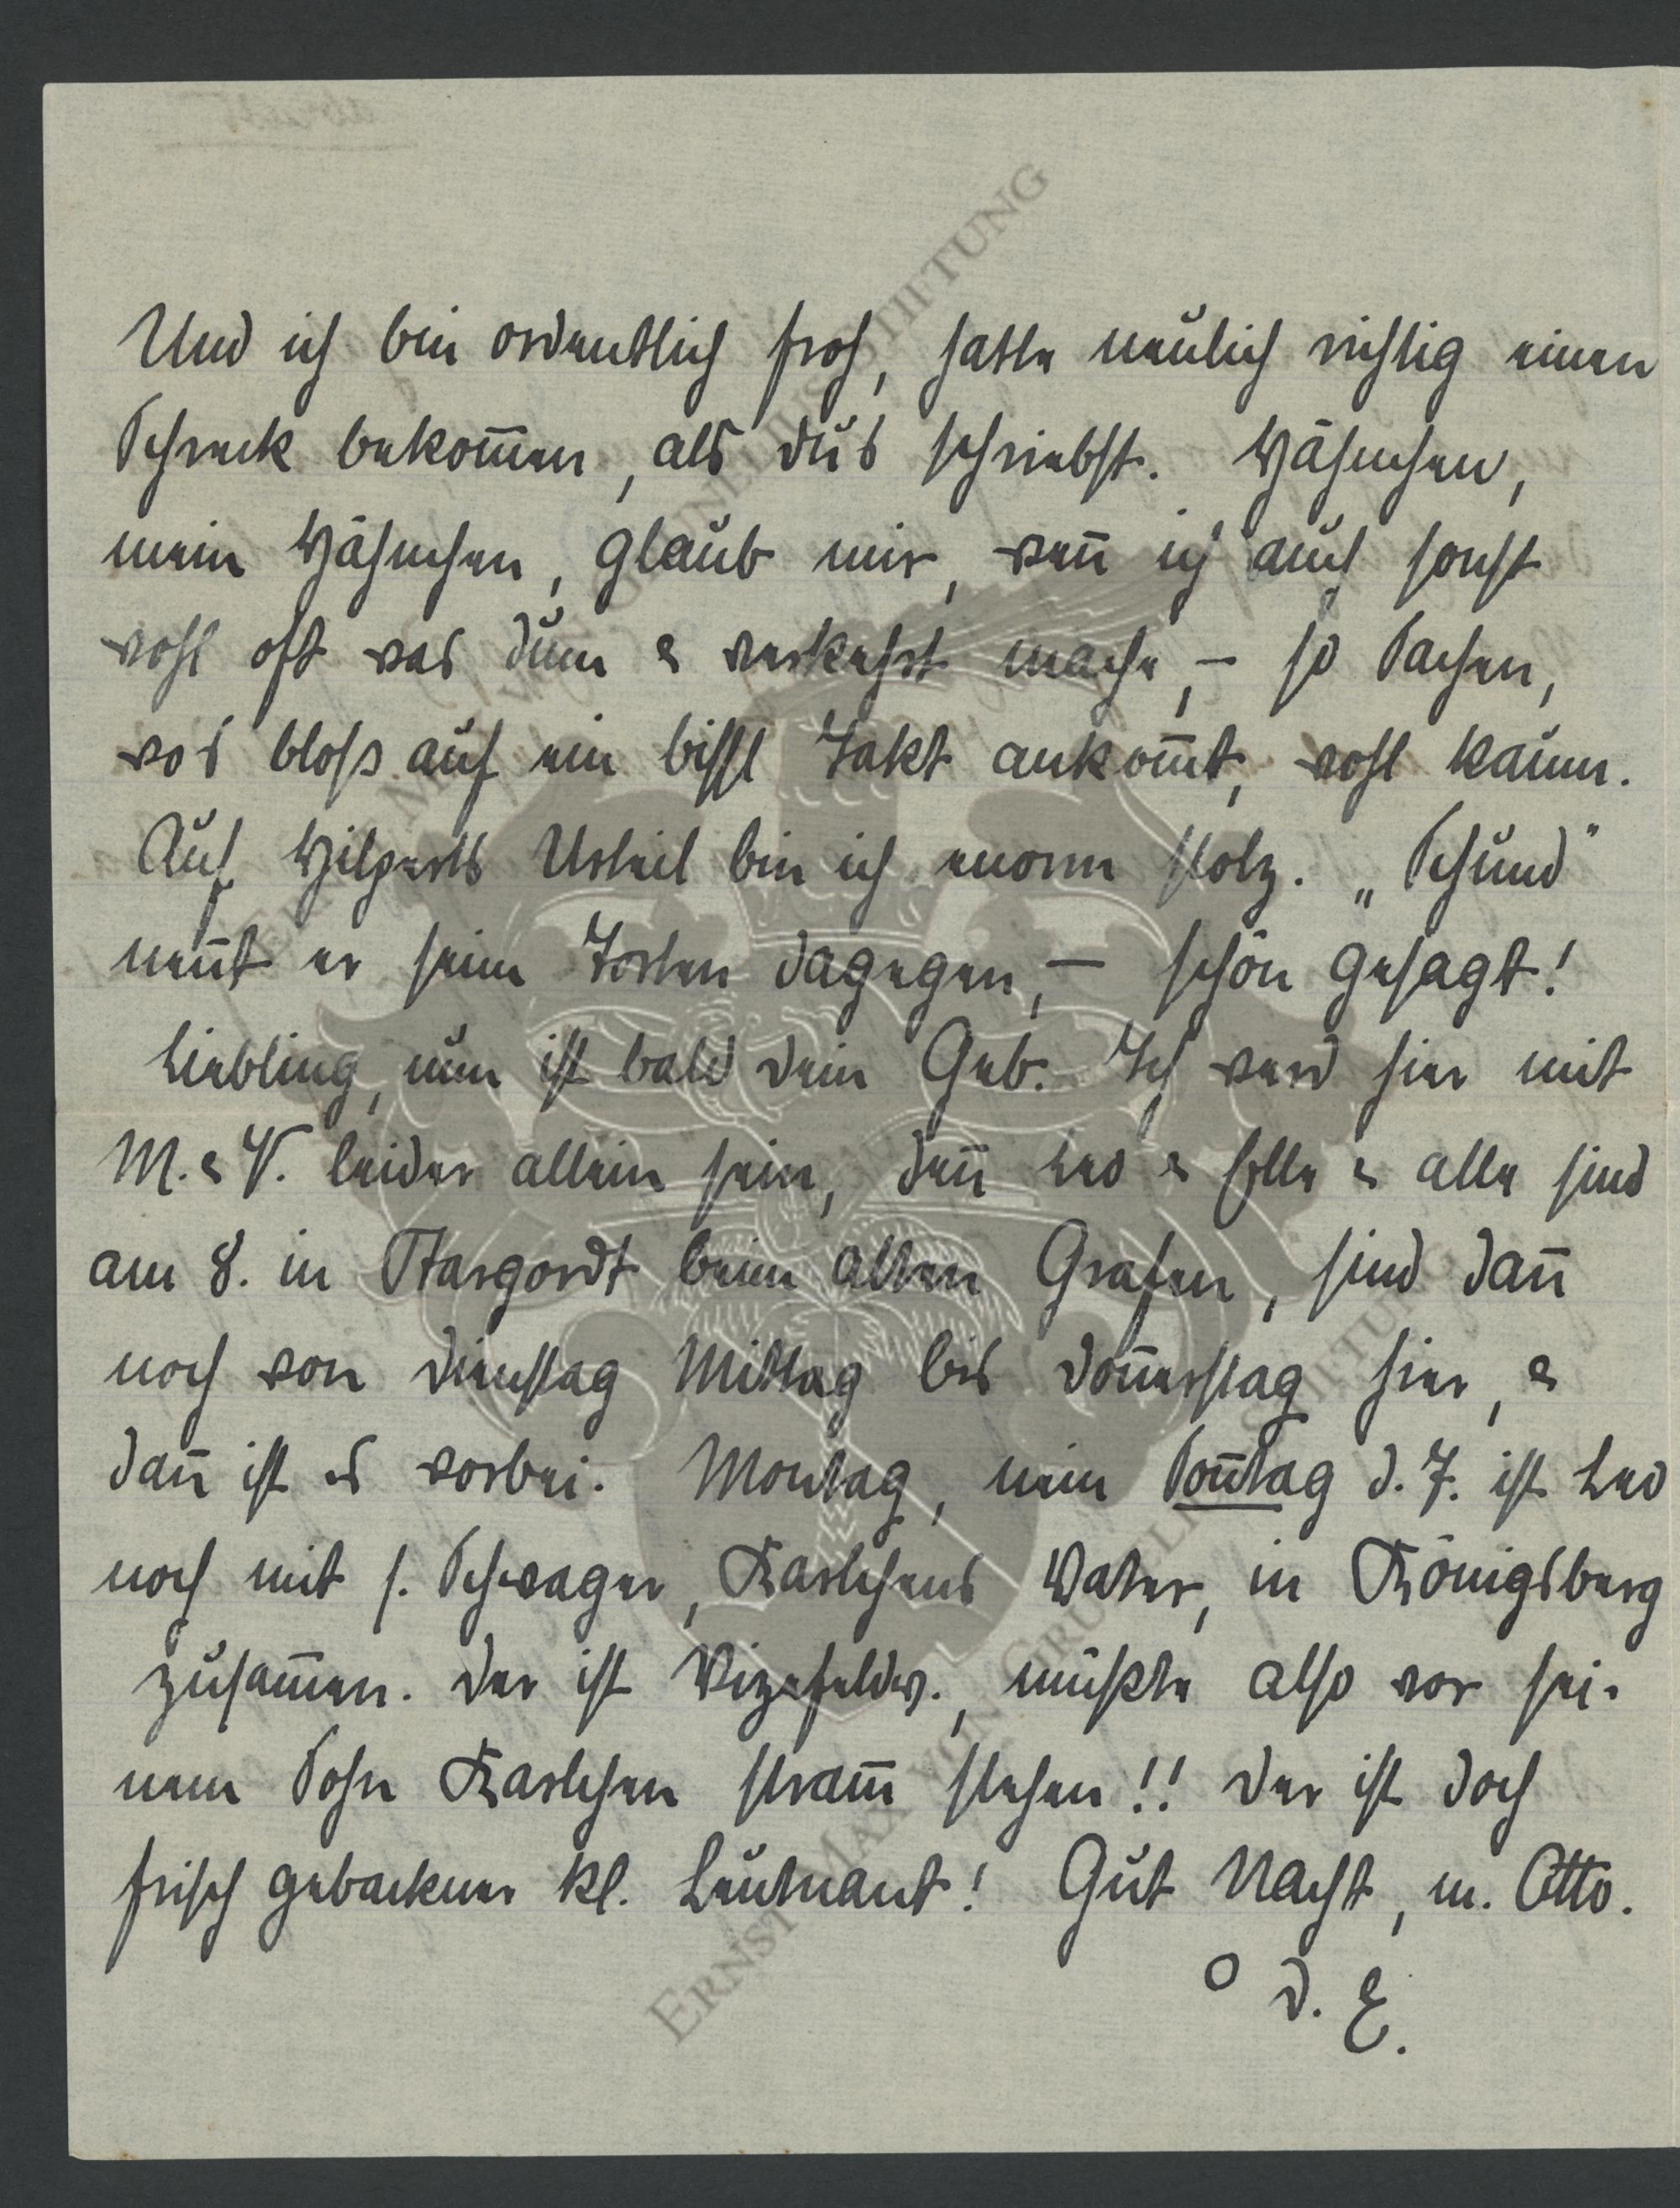 Und ich bin ordentlich froh, hatte neulich richtig einen
Schreck bekom̄en, als du's schriebst. Hähnchen,
mein Hähnchen, glaub mir, wen̄ ich auch sonst
wohl oft was dum & verkehrt mache, – so Sachen,
wo's bloss auf ein bissl Takt ankom̄t, wohl kaum.
Auf Hilperts Urteil bin ich enorm stolz. „Schund"
nen̄t er seine Torten dagegen, – schön gesagt!
Liebling, nun ist bald dein Geb. Ich werd hier mit
M. & V. leider allein sein, den̄ Leo & Elle & alle sind
am 8. in Stargordt beim alten Grafen, sind dan̄
noch von Dienstag Mittag bis Don̄erstag hier, &
dan̄ ist es vorbei. Montag, nein Son̄tag d. 7. ist Leo
noch mit s. Schwager, Karlchens Vater, in Königsberg
zusam̄en. Der ist Vizefeldw., müsste also vor sei-
nem Sohn Karlchen stram̄ stehen!! Der ist doch
frisch gebackner kl. Leutnant! Gut Nacht, m. Otto.
o d. E.
ERNST MAX VON GRUNELIUS STIFTUNG
ERNST MAX VON GRUNELIUS STIFTUNG